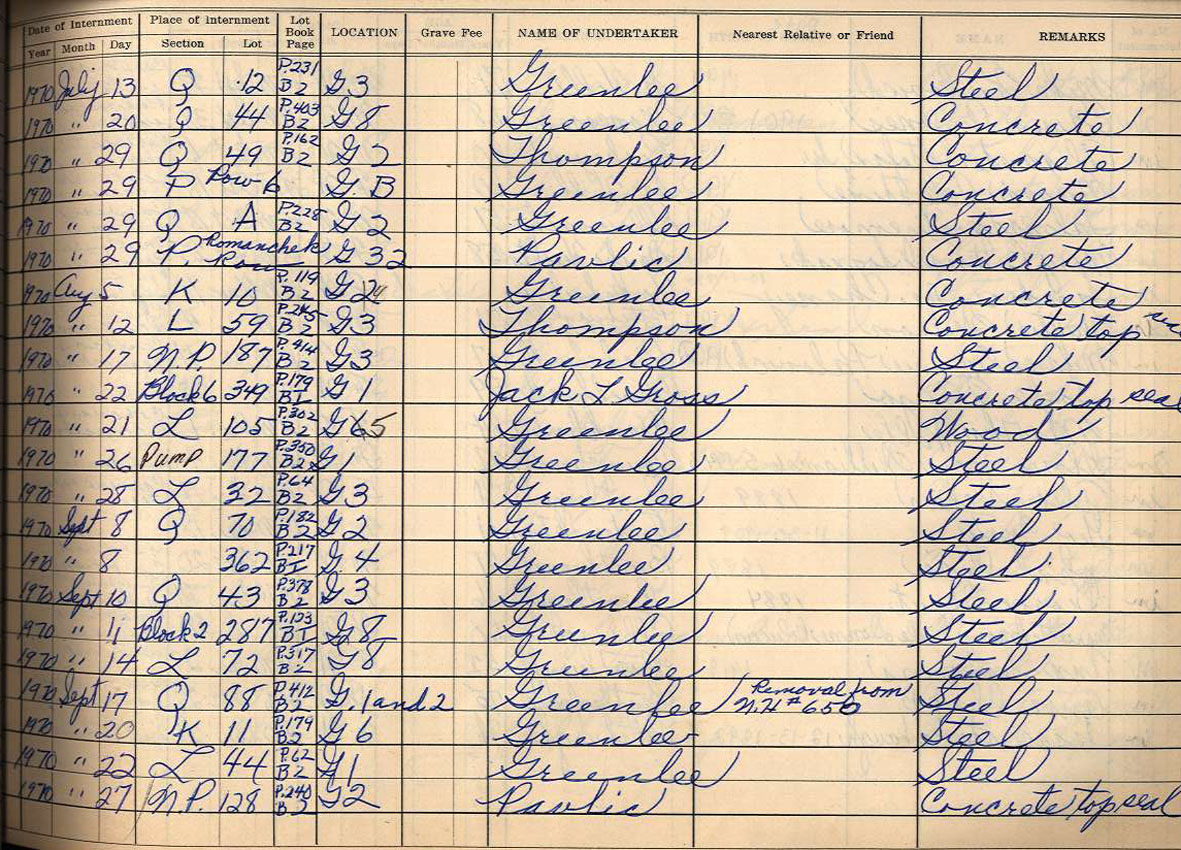 Date of Internment Place of internment Lot Book Page LOCATION Grave Fee NAME OF UNDERTAKER Nearest Relative or Friend REMARKS
Year Month Day Section Lot
1970 July 13 Q 12 P.231 B2 G3 Greenlee Steel
1970 " 20 Q 44 P.403 B2 G8 Greenlee Concrete
1970 " 29 Q 49 P.162 B2 G2 Thompson Concrete
1970 " 29 P Row 6 G. B Greenlee Concrete
1970 " 29 Q A P.228 B2 G2 Greenlee Steel
1970 " 29 P. Romanchek Row G 32 Pavlic Concrete
1970 Aug 5 K 10 P.119 B2 G Greenlee Concrete
1970 " 12 L 59 B2 G3 Thompson Concrete top
1970 " 17 N.P. 187 P.414 B2 G3 Greenlee Steel
1970 " 22 Block 6 349 P.179 B1 G1 Jack L Gross Concrete top seal
1970 " 21 L 105 P.302 B2 G Greenlee Wood
1970 " 26 Pump 177 P.350 B2 G1 Greenlee Steel
1970 " 28 L 32 P.64 B2 G3 Greenlee Steel
1970 Sept 8 Q 70 P.182 B2 G2 Greenlee Steel
1970 " 8 362 P.217 B1 G.4 Greenlee Steel
1970 Sept 10 Q 43 P.378 B2 G3 Greenlee Steel
1970 " 11 Block 2 287 B1 G Greenlee Steel
1970 " 14 L 72 P.317 B2 G8 Greenlee Steel
1970 Sept 17 Q 88 P.412 B2 G. 1 and 2 Greenlee Removal from N.H # 650 Steel
1970 " 20 K 11 P.179 B2 G6 Greenlee Steel
1970 " 22 L 44 P.62 B2 G1 Greenlee Steel
1970 " 27 N.P. 128 P.240 B2 G2 Pavlic Concrete top seal